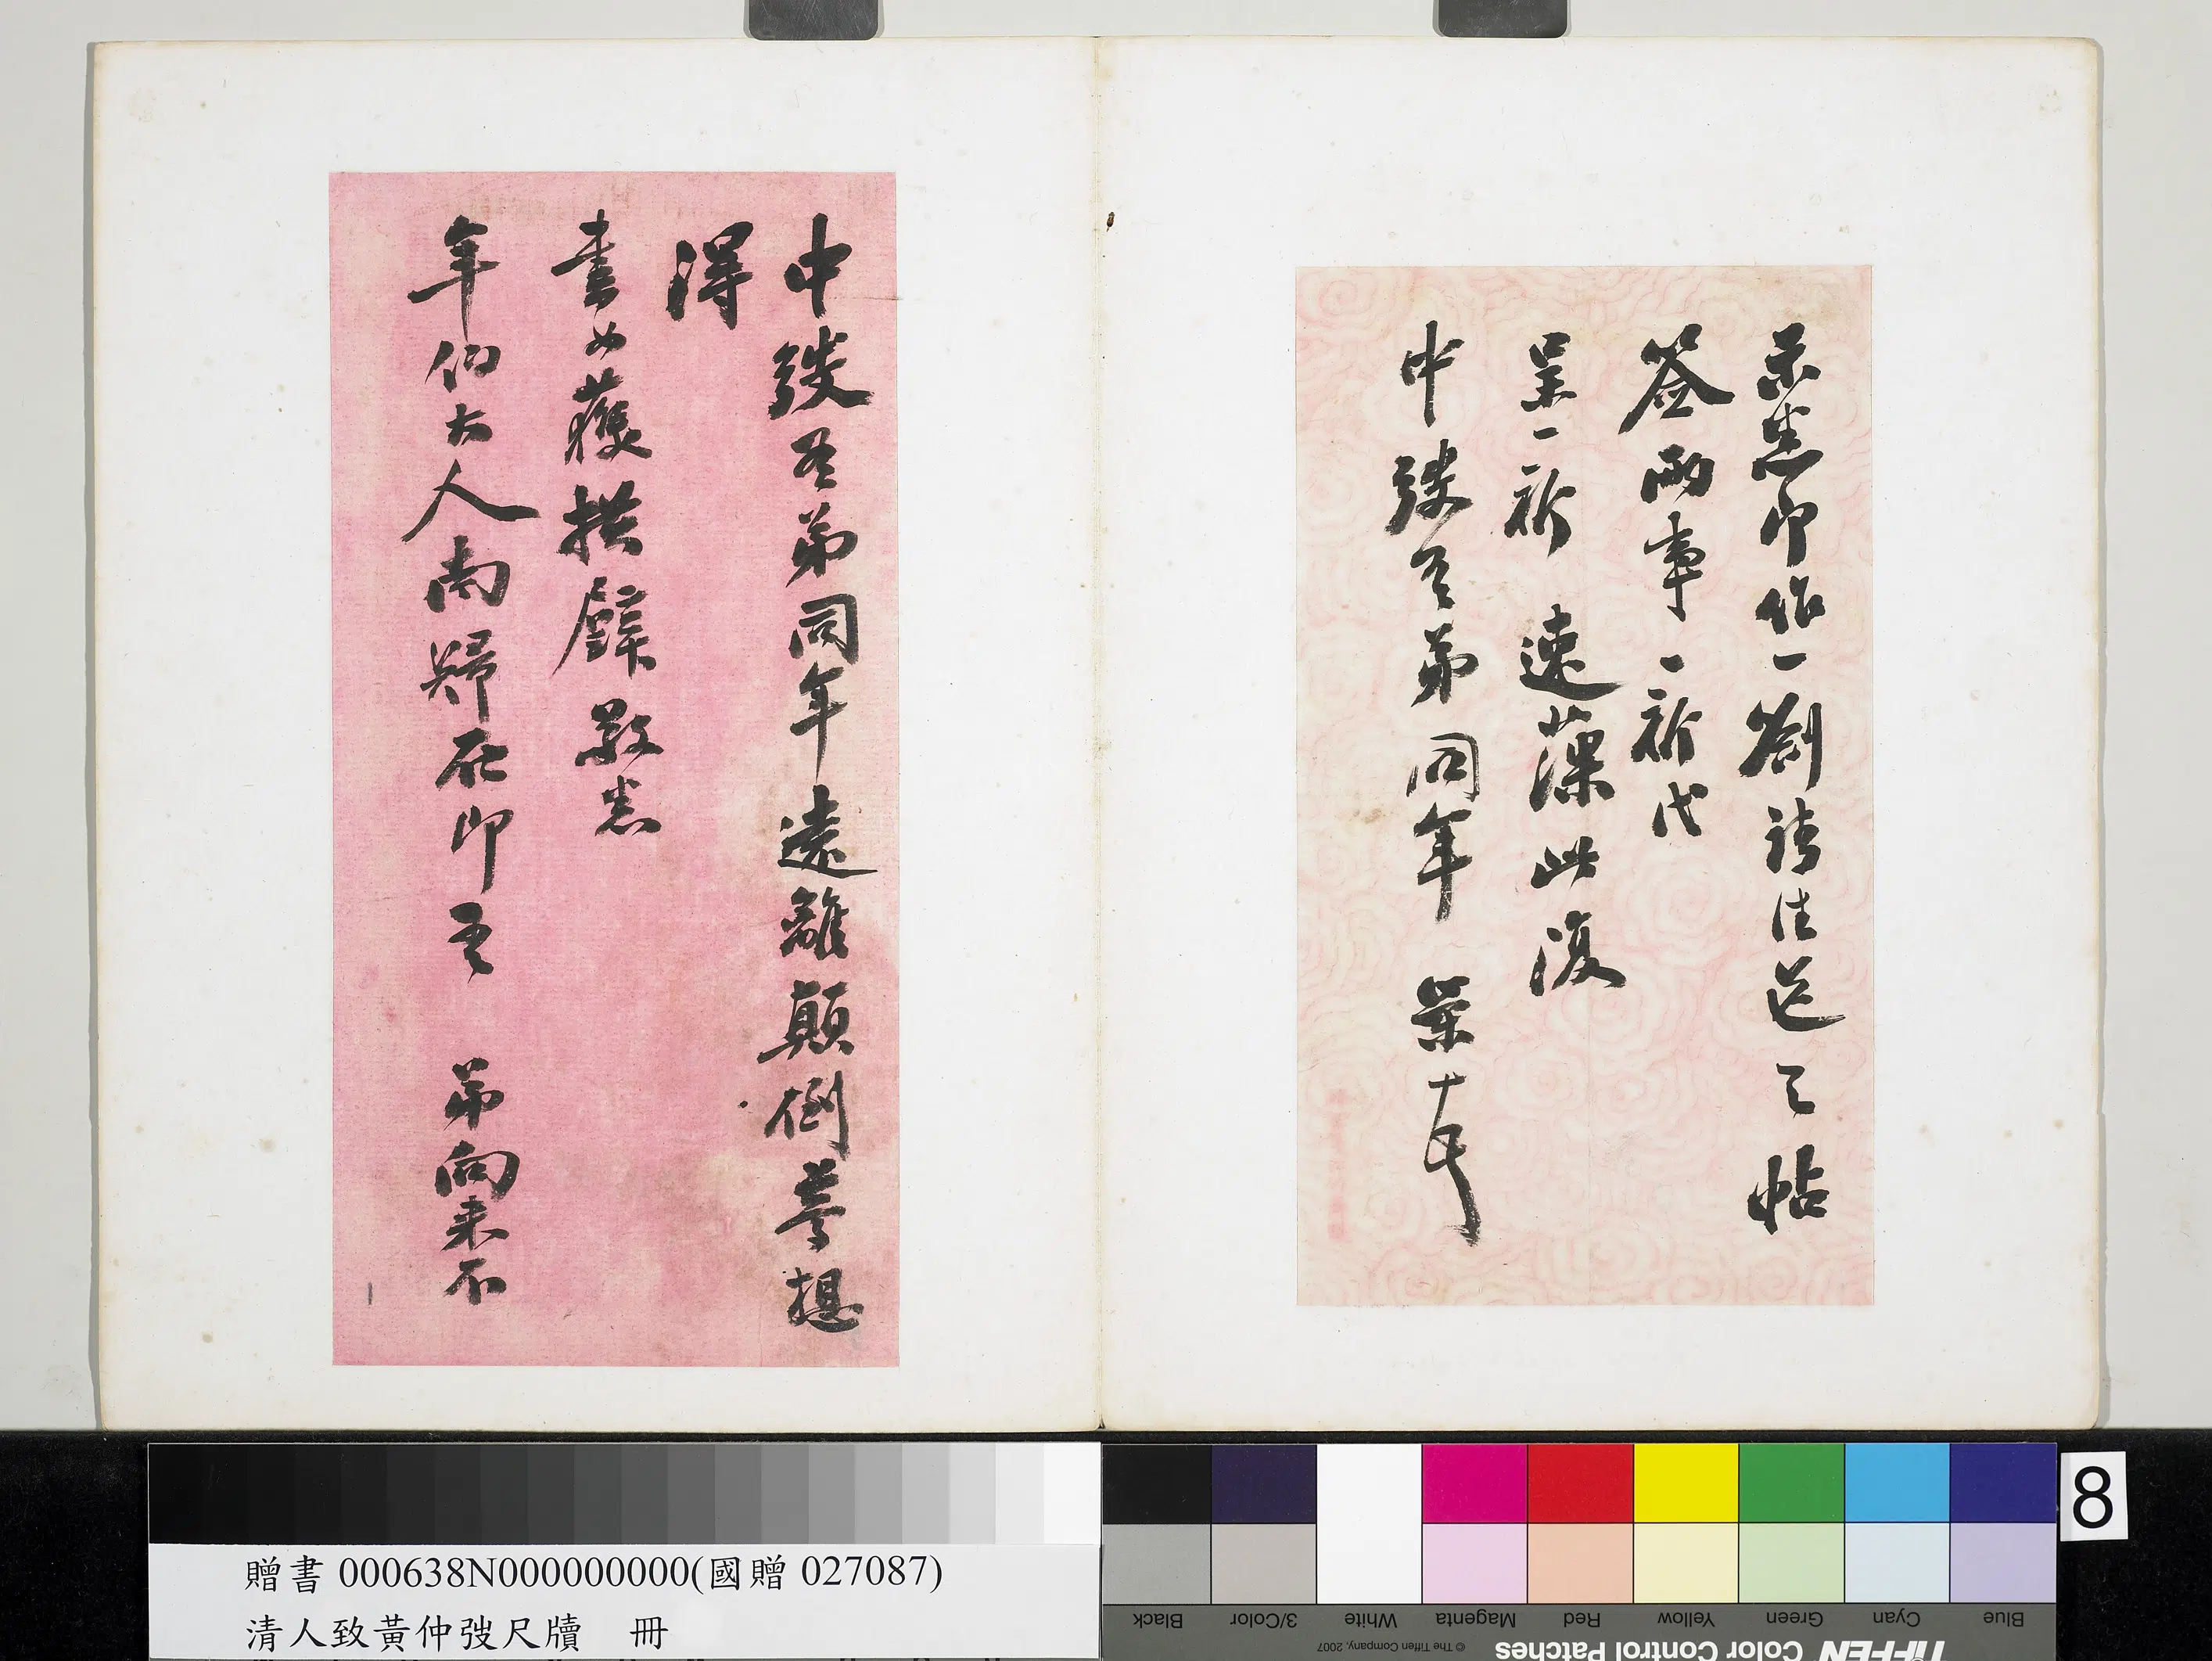 示悉即作一劄請佳送之帖
簽兩事一祈代
呈一祈 速藻此復
中弢吾弟同年 榮 十月
中弢吾弟同年遠離顛倒夢想
得
書如獲拱璧敬悉
年伯大人南歸在即吾 弟向來不
8
贈書 000638N000000000(國贈 027087)
清人致黃仲弢尺牘 冊
Black 3/Color White Magenta Red Yellow Green Cyan Blue
© The Tiffen Company, 2007
TIFFEN Color Control Patches